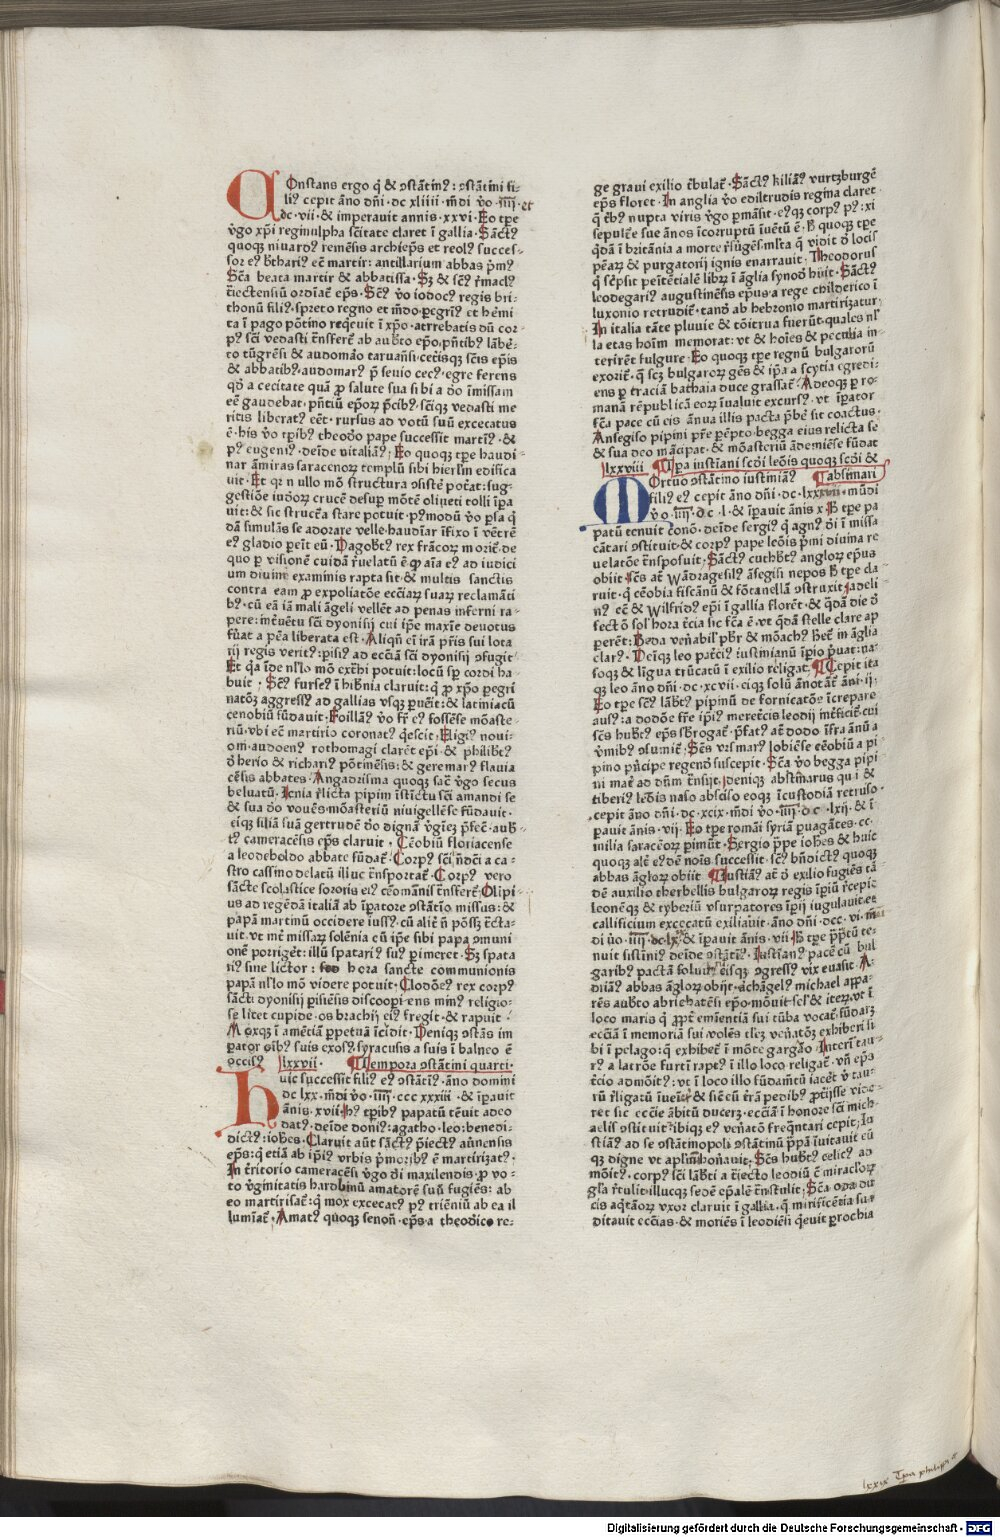 COnstans ergo q̇ & ꝯstātinꝰ: ꝯstātini fi-
liꝰ cepit āno dn̄i · dc xliiii · m̄di v̇o · iiii · et
dc · vii · & imperavit annis · xxvi · Eo tꝑe
v̇go xp̄i reginulpha sc̄itate claret ī gallia · Sāctꝰ
quoqꝫ nivardꝰ remēsis archiep̄s et reolꝰ succes-
sor eꝰ b̄thariꝰ ec̄ martir: antillarium abbas p̄mꝰ
Sc̄a beata martir & abbatissa · Sꝫ & sc̄ꝰ r̄maclꝰ
t̄iectensiū ordīat̄ ep̄s · Sc̄ꝰ v̇o iodocꝰ regis bri-
thonū filiꝰ · spreto regno et m̄do · ꝑegrīꝰ et hēmi
ta ī pago pōtino req̇evit ī xp̄o · atrrebatis dū cor-
pꝰ sc̄i vedasti t̄nsferr̄ ab aub̄to ep̄o, pn̄tibꝰ lābē-
to tūgrēsi & audomāo taruan̄si · cet̄isqꝫ sc̄is ep̄is
& abbatibꝰ · audomarꝰ p̄ senio cecꝰ · egre ferens
qd̄ a cecitate quā ꝓ salute sua sibi a do̅ īmissam
eē gaudebat · pn̄tiū ep̄oꝝ p̄cibꝰ, sc̄iqꝫ vedasti me
ritis liberatꝰ eēt · rursus ad votū suū excecatus
ē · his v̇o tꝑibꝰ theodo̅ pape successit martīꝰ · &
pꝰ eugeniꝰ · deīde vitaliāꝰ; Eo quoqꝫ tꝑe haudi-
nar āmiras saracenoꝝ templū sibi hierlm̄ edifica
vit · Et qꝛ n ullo mō structura ꝯsistē potat̄: sug-
gestiōe iudoꝝ crucē desup mōtē oliueti tolli īꝑa
uit: & sic struct̄a stare potuit · pꝰmodū v̇o ꝑsa q̇
dā simulās se adorare velle · haudīar īfixo ī vētrē
eꝰ gladio ꝑeīt eū · Dagob̄tꝰ rex frācoꝝ morit̄ · de
quo ꝑ visionē cuidā r̄uelatū ē ꝙ aīa eꝰ ad iudici
um divini examinis rapta sit · & multis sanctis
contra eam ꝓ expoliatōe ecc̄iaꝝ suaꝝ reclamāti
bꝰ · cū eā iā mali āgeli vellēt ad penas inferni ra-
pere: int̄uētu sc̄i dyonisij cui ip̄e maxīe devotus
fūat a pēa liberata est · Aliqn̄ eī irā pr̄is sui lota
rij regis veritꝰ: ꝓfuꝰ ad ecc̄iā sc̄i dyonisij ꝯfugit
Et q̇a īde nl̄lo mō ext̄hi potuit: locū sꝑ cordi ha-
buit; Sc̄ꝰ furseꝰ ī hib̄nia claruit: q̇ ꝓ xp̄o ꝑegri
natōꝫ aggressꝰ ad gallias vsqꝫ ꝑuēit: & latiniacū
cenobiū fūdavit · Foillāꝰ v̇o fr̄ eꝰ fossēse mōaste-
riū, vbi eē martirio coronatꝰ q̇escit · Eligiꝰ noui-
om̄ · audoenꝰ rothomagi clarēt ep̄i · & philib̄tꝰ
ꝺherio & richariꝰ pōtinēsis: & geremarꝰ flavia
cēsis abbates · Angadrisma quoqꝫ sac̄ v̇go secus
beluatū · Icnia r̄licta pipini īstīctu sc̄i amandi se
& sua do̅ vouēs · mōasteriū niuigellēse fūdauit ·
eiqꝫ filiā suā gertrudē do̅ dignā v̇giēꝫ p̄fec̄ · aub̄
tꝰ cameracēsis ep̄s claruit · Cēobiū floriacense
a leodeboldo abbate fūdat̄ · Corpꝰ sc̄i n̄dc̄i a ca-
stro cassino delatū illuc t̄nsportat̄ · Corpꝰ vero
sācte scolastice sororis eiꝰ cēomānis t̄nsferr̄; Olipi
us ad regēdā italiā ab īꝑatore ꝯstātīo missus: &
papā martinū occidere iussꝰ · cū alit̄ n̄ pōssꝫ t̄cta-
uit · vt mr̄ missaꝝ solēnia cū ip̄e sibi papa ꝯmuni
onē porriget: illū spatariꝰ suꝰ ꝑimeret · Sꝫ spata
riꝰ sine lictor: hora sancte communionis
papā nl̄lo mō videre potuit; Clodo̅eꝰ rex corpꝰ
sāct̄i dyonisij ꝑisiēsis discoopiens minꝰ religio-
se licet cupide · os brachij eiꝰ fregit · & rapuit ·
Moxqꝫ ī amētiā ꝑpetuā īcidit · Deniqꝫ ꝯstās im
ꝑator oībꝰ suis exosꝰ, syracusis a suis ī balneo ē
occisꝰ lxxvii · ¶Tempora ꝯstātini quarti ·
Huic successit filiꝰ eꝰ ꝯstātīꝰ · āno domini
dc lxx · m̄di v̇o · iiii · ccc xxxiii · & īꝑauit
ānis · xvii · hꝰ tꝑibꝰ papatū tēuit adeo
datꝰ · deīde donīꝰ: agatho · leo: benedi-
dictꝰ: ioh̄es · Claruit aūt sāctꝰ p̄iectꝰ aūnensis
ep̄s: q̇ etiā ab ip̄iꝰ vrbis p̄moribꝰ ē martirizatꝰ ·
In t̄ritorio cameracēsi v̇go dn̄i maxilendis ꝓ vo-
to v̇ginitatis harduinū amatorē suū fugiēs: ab
eo martirisat̄: q̇ mox excecatꝰ pꝰ triēniū ab ea il
lumīat̄ · Amatꝰ quoqꝫ senon̄ · ep̄s a theodico re-
ge graui exilio t̄bulat̄ · Sāctꝰ kiliāꝰ vurtzburgē
ep̄s floret · In anglia v̇o ediltrudis regina claret ·
q̇ t̄bꝰ nupta viris v̇go ꝑmāsit · eꝰqꝫ corpꝰ pꝰ: xi
sepult̄e sue ānos īcorruptū īuētū ē · h̄ quoqꝫ tꝑe
q̇dā ī britānia a morte r̄sūgēs · ml̄ta q̇ vidit d̄ locis
pēaꝝ & purgatorij ignis enarrauit · Theodorus
q̇ sc̄psit peītētiale libꝝ ī āglia synod̄ h̄uit · Sāctꝰ
leodegariꝰ augustinēsis ep̄us · a rege childerico ī
luxonio retrudit̄ · tand̄ ab hebronio martirizatur
In italia tāte pluuie & tōitrua fuerūt · quales nl̄-
la etas hoīm memorat: vt & hoīes & peculia in-
terirēt fulgure · Eo quoqꝫ tꝑe regnū bulgarorū
exorit̄ · q̄ scꝫ bulgaroꝝ gēs & ip̄a a scytia egredi-
ens ꝑ traciā bathaia duce grassat̄ · Adeoqꝫ ꝑ ro-
manā rēpublicā eoꝝ īualuit excursꝰ · vt īꝑator
fc̄a pace cū eis ānua illis pacta p̄bē sit coactus ·
Ansegiso pipini pr̄e ꝑēpto · begga eius relicta se
& sua deo mācipat · & mōasteriū ādemiēse fūdat
lxxviii ¶Tꝑa instīani scd̄i leōis quoqꝫ scd̄i &
MOrtuo ꝯstātino iustinianꝰ ¶absimari
filiꝰ eꝰ cepit āno dn̄i · dc · lxxxvii · mūdi
v̇o · iiii · dc · l · & īꝑauit ānis x · h̄ tꝑe pa
patū tenuit c̄ono · deīde sergiꝰ q̇ agnꝰ d̄i ī missa
cātari ꝯstituit · & corpꝰ pape leōis p̄mi diuina re
uelatōe t̄nsposuit; Sāctꝰ cuthb̄tꝰ angloꝝ ep̄us
obiit · Sc̄s at̄ wādragesilꝰ āsegisi nepos h̄ tꝑe cla-
ruit · q̇ cēobia fiscānū & fōtanellā ꝯstruxit · adeli-
nꝰ eē & wilfridꝰ ep̄i ī gallia florēt · & q̇dā die d̄
fectō sol̄ hora t̄cia sic fc̄a ē · vt q̇dā stelle clare ap
perēt: Beda ven̄abilꝰ pb̄r & mōachꝰ het̄ in āglia
clarꝰ · Deīqꝫ leo patr̄ciꝰ iustinianū īꝑio p̄uat: na-
soqꝫ & ligua trūcatū ī exilio religat; ¶Cepit ita
qꝫ leo āno dn̄i · dc · xcvii · eiqꝫ solū ānotāt̄ āni · ij ·
Eo tꝑe sc̄ꝰ lāb̄tꝰ pipinū de fornicatōe īcrepare
ausꝰ: a dodōe fr̄e ip̄iꝰ meret̄cis leodij int̄ficit̄ · cui
sc̄s hub̄tꝰ ep̄s sb̄rogat̄ · p̄fatꝰ at̄ dodo īfra ānū a
v̇mibꝰ ꝯsumit̄ · Sc̄s vrsmarꝰ lobiēse cēobiū a pi-
pino pn̄cipe regend̄ suscepit · Sc̄a v̇o begga pipi-
ni mat̄ ad dn̄m t̄nsijt · Deniqꝫ abstīmarus qui &
tiberiꝰ leōis naso absciso eoqꝫ īcustodiā retruso
cepit āno dn̄i · dc · xcix · m̄di v̇o · iiii · dc · lxij · & ī
ꝑauit ānis · vij · Eo tꝑe romāi syriā ꝑuagātes · cc ·
milia saracēoꝝ ꝑimūt · Sergio p̄pe ioh̄es & huic
quoqꝫ alt̄ eꝰdē noīs successit · sc̄ꝰ bn̄dictꝰ quoqꝫ
abbas āgloꝝ obiit · ¶Iustīaꝰ at̄ d̄ exilio fugiēs tā
dē auxilio therbellis bulgaroꝝ regis īꝑiū r̄cepit
leonēqꝫ & tyberiū vsurpatores īꝑij iugulauit · et
callificium excecatū exiliauit · āno dn̄i · dcc · vi · m̄
di v̇o · iiii · dc · lxx & īꝑavit ānis · vii · h̄ tꝑe p̄ptū te-
nuit sisīniꝰ deīde ꝯstātīꝰ · Iustīanꝰ pacē cū bul
garibꝰ pactā soluit · eisqꝫ ꝯgressꝰ vix euasit · A-
driāꝰ abbas āgloꝝ obijt · archāgelꝰ michael appa-
rēs aub̄to abrichatēsi ep̄o · mōuit sel̄ & iteꝝ vt ī
loco maris q̇ ꝓpt̄ emīentiā sui tūba vocat̄ · fūdaꝫ
ecc̄iā ī memoriā sui · volēs tl̄eꝫ ven̄atōꝫ exhiberi si
bi ī pelago: q̇ exhibet̄ ī mōte gargāo · Interī tau-
rꝰ a latrōe furtī raptꝰ ī illo loco religat̄ · vn̄ ep̄s
t̄cio admōit̄: vt ī loco illo fūdam̄tū iacēt vt tau-
rū r̄ligatū īueīt̄ & sic cū t̄rā pedibꝰ ꝓt̄isse vide-
ret sic ecc̄ie ābitū ducerꝫ · ecc̄iā ī honore sc̄i mich-
aelis ꝯstituit · ibiqꝫ eꝰ ven̄atō freq̄ntari cepit; Iu
stiāꝰ ad se ꝯstātinopoli ꝯstātinū p̄pā īuitauit eū
qꝫ digne vt apl̄m honauit · Sc̄s hub̄tꝰ celicꝰ ad
mōitꝰ · corpꝰ sc̄i lāb̄ti a t̄iecto leodiū c̄ miracloꝝ
gl̄a r̄tulit · illucqꝫ sedē ep̄alē t̄nstulit; Sc̄a oda du
cis aq̇tāoꝝ vxor claruit ī gallia · q̇ mirificētia sua
ditauit ecc̄ias · & moriēs ī leodiēsi q̇euit ꝑrochia
lxxix Tꝑa philippi
Digitalisierung gefördert durch die Deutsche Forschungsgemeinschaft - DFG